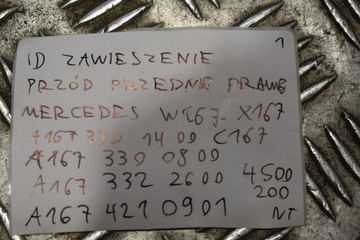 1
ID ZAWIESZENIE
PRZÓD PRZEDNIE PRAWE
MERCEDES W167 X167
A167 330 1400 C167
A167 330 0800
A167 332 2600 4500
200
A167 421 0901 NT